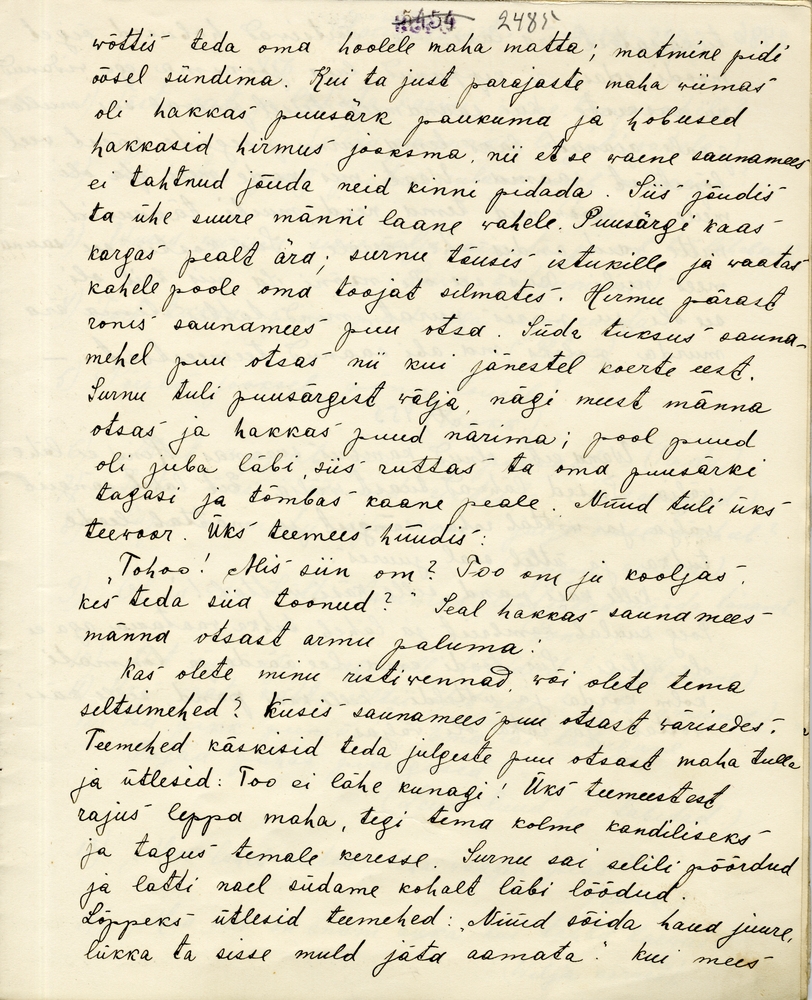 2485
wõttis teda oma hoolele maha matta; matmine pidi
öösel sündima. Kui ta just parajaste maha wiimas
oli hakkas puusärk paukuma ja hobused
hakkasid hirmus jooksma, nii et se waene saunamees
ei tahtnud jõuda neid kinni pidada. Siis jõudis
ta ühe suure männi laane wahele. Puusärgi kaas
kargas pealt ära; surnu tõusis istukille ja waatas
kahele poole oma toojat silmates. Hirmu pärast
ronis saunamees puu otsa. Süda tuksus sauna-
mehel puu otsas nii kui jänestel koerte eest.
Surnu tuli puusärgist wälja, nägi meest männa
otsas ja hakkas puud närima; pool puud
oli juba läbi, siis ruttas ta oma puusärki
tagasi ja tõmbas kaane peale. Nüüd tuli üks
teewoor. Üks teemees hüüdis:
„Tohoo! Mis siin om? Too om ju kooljas,
kes teda siia toonud?" Seal hakkas saunamees
männa otsast armu paluma:
Kas olete minu ristiwennad, wõi olete tema
seltsimehed? Küsis saunamees puu otsast wärisedes.
Teemehed käskisid teda julgeste puu otsast maha tulla
ja ütlesid: Too ei lähe kunagi! Üks teemeestest
rajus leppa maha, tegi tema kolme kandiliseks
ja tagus temale keresse. Surnu sai selili pöördud
ja latti nael südame kohalt läbi löödud.
Lõppeks ütlesid teemehed: „Nüüd sõida haud juure,
lükka ta sisse muld jäta aamata." Kui mees